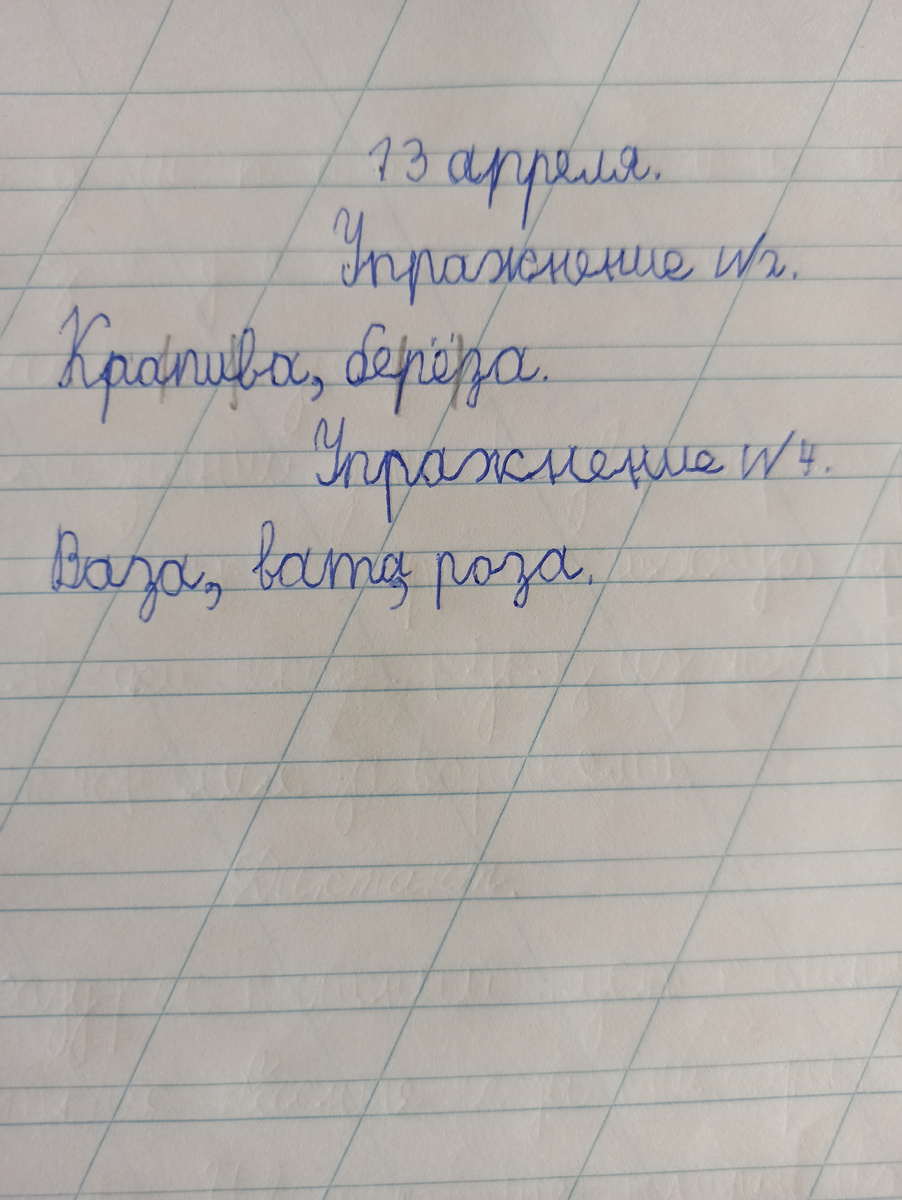 13 апреля.
Упражнение №2.
Кра|пи|ва, бе|рё|за.
Упражнение №4.
Ваза, вата, роза.